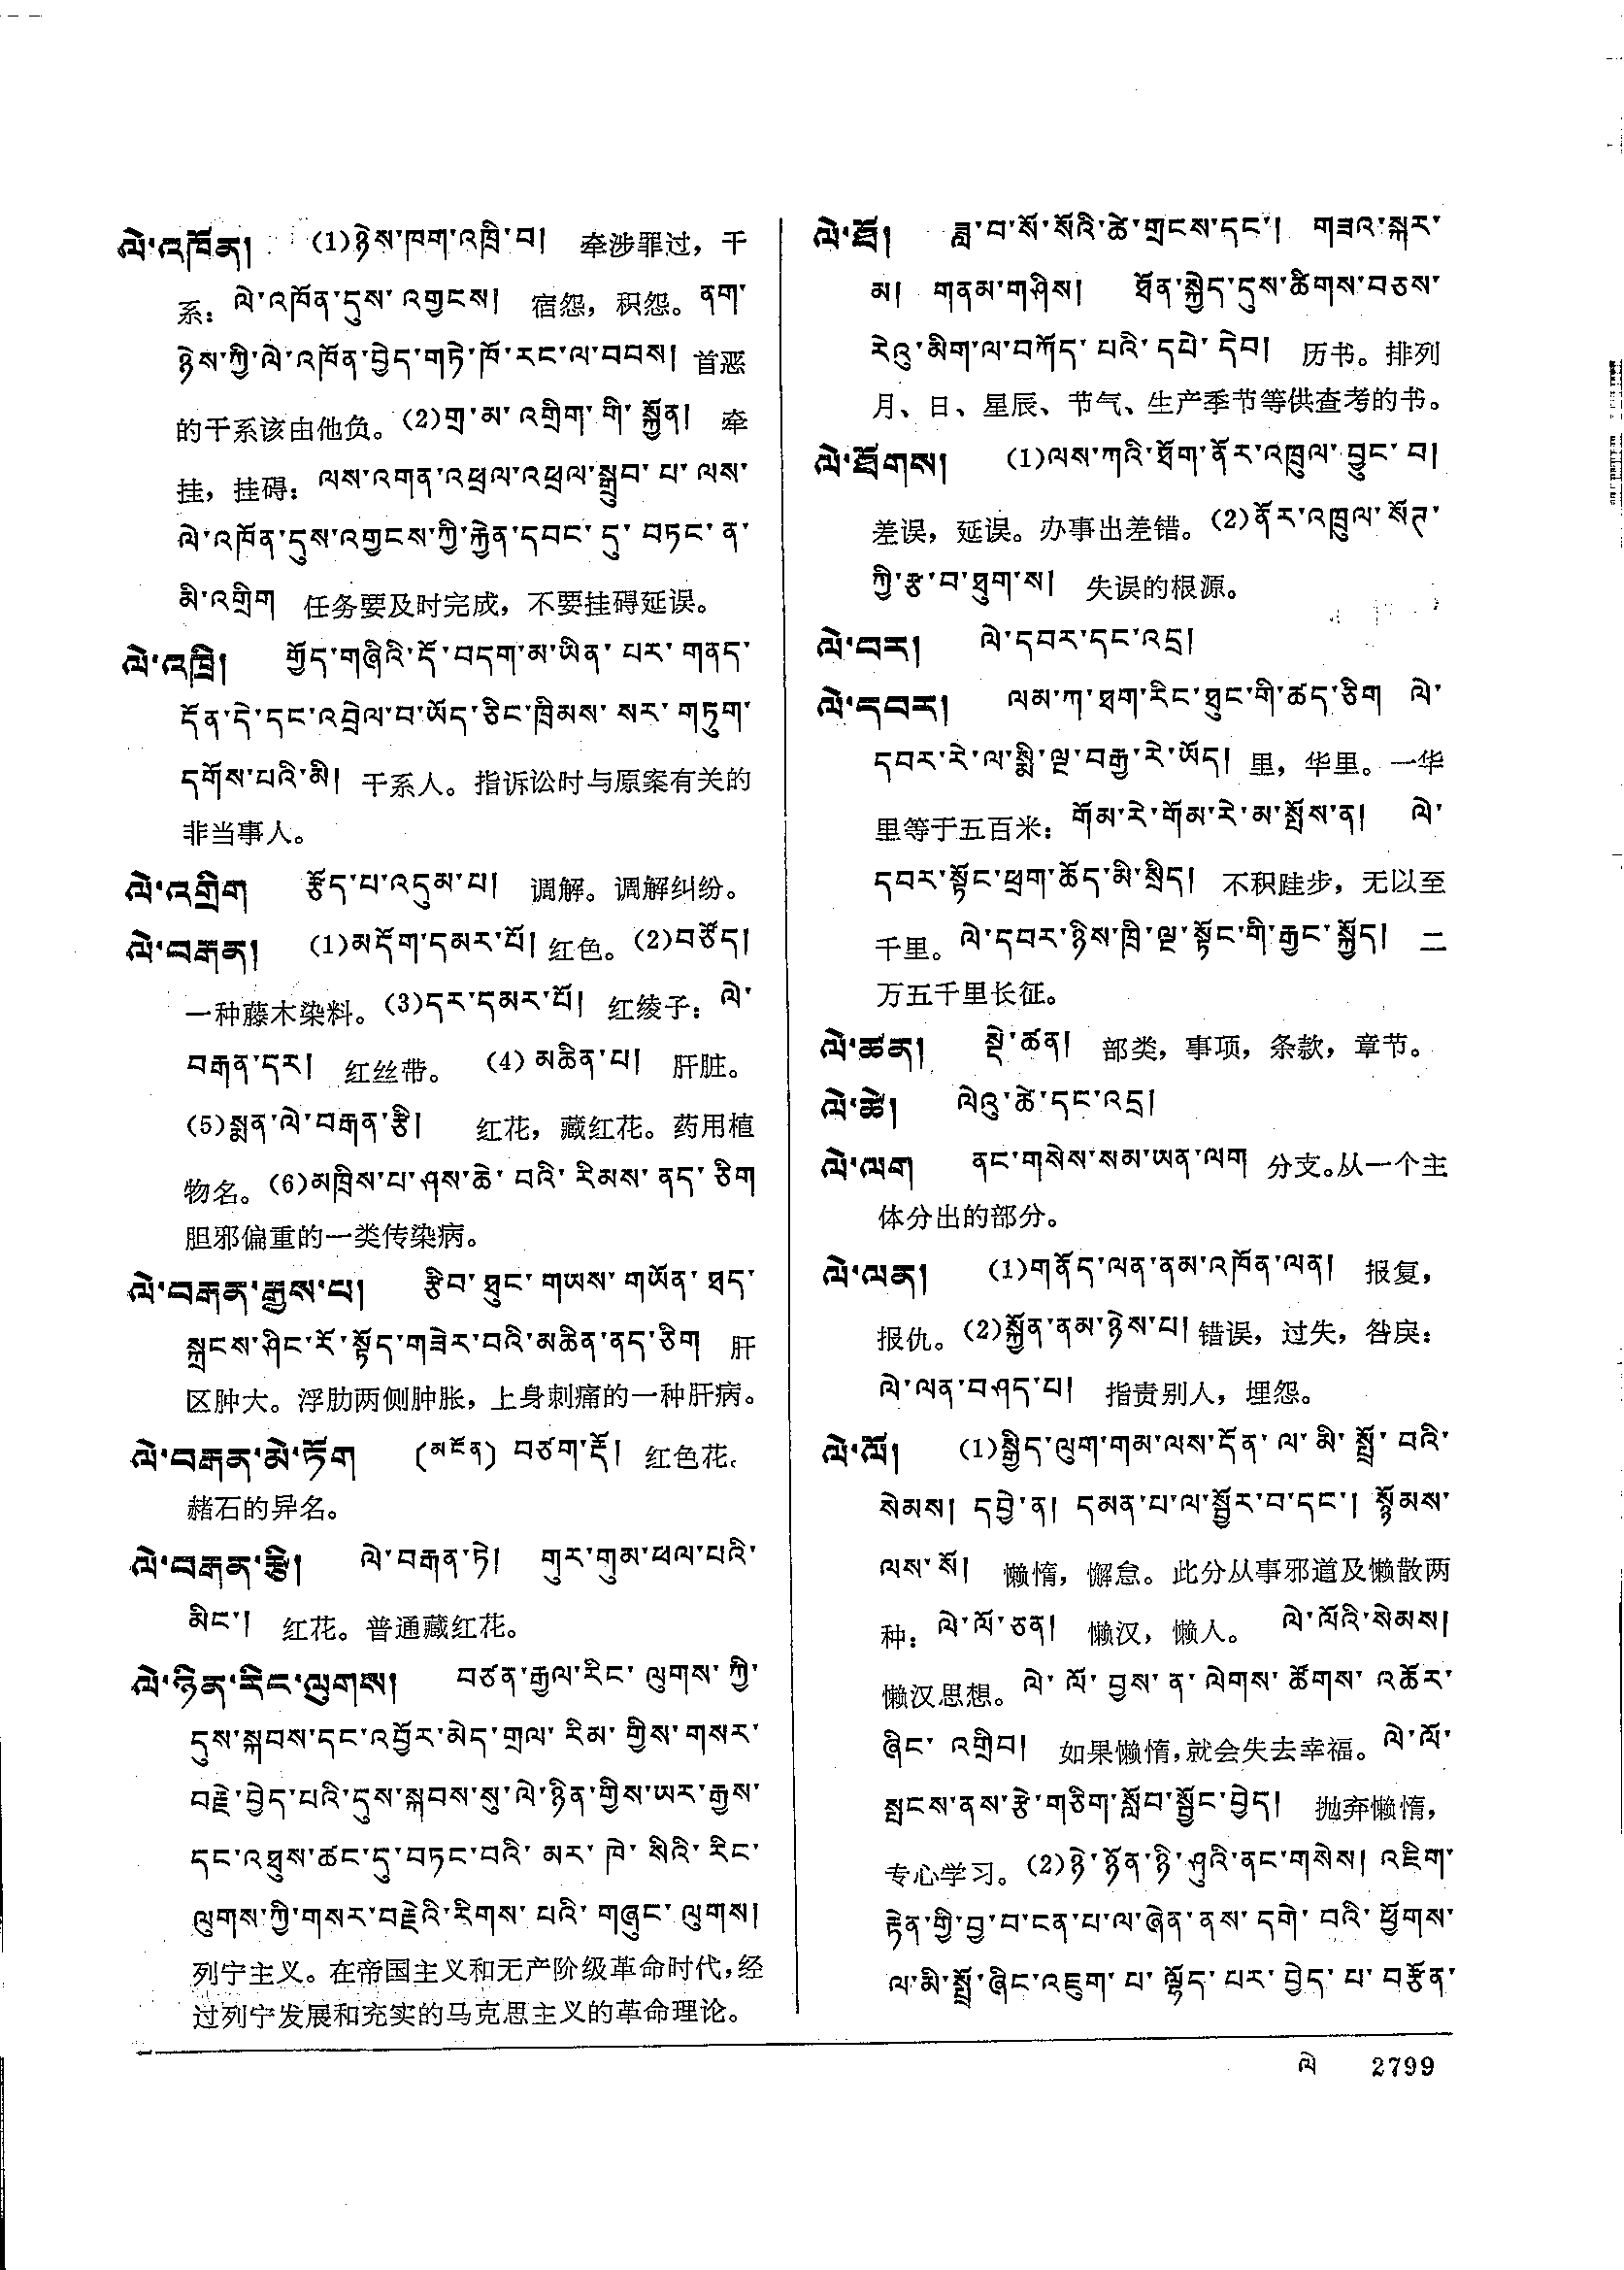 ལེ་འཁོན། (1)ཉེས་ཁག་འཁྲི་བ། 牵涉罪过，干
系：ལེ་འཁོན་དུས་འགྱངས། 宿怨，积怨。ནག་
ཉེས་ཀྱི་ལེ་འཁོན་བྱེད་གཏེ་ཁོ་རང་ལ་བབས། 首恶
的干系该由他负。(2)གྲ་མ་འགྲིག་གི་སྐྱོན། 牵
挂，挂碍：ལས་འགན་འཕྲལ་འཕྲལ་སྒྲུབ་པ་ལས་
ལེ་འཁོན་དུས་འགྱངས་ཀྱི་རྐྱེན་དབང་དུ་བཏང་ན་
མི་འགྲིག 任务要及时完成，不要挂碍延误。
ལེ་འཁྲི། གྱོད་གཞིའི་དོ་བདག་མ་ཡིན་པར་གནད་
དོན་དེ་དང་འབྲེལ་བ་ཡོད་ཅིང་ཁྲིམས་སར་གཏུག་
དགོས་པའི་མི། 干系人。指诉讼时与原案有关的
非当事人。
ལེ་འགྲིག རྩོད་པ་འདུམ་པ། 调解。调解纠纷。
ལེ་བརྒན། (1)མདོག་དམར་པོ། 红色。(2)བཙོད།
一种藤木染料。(3)དར་དམར་པོ། 红绫子：ལེ་
བརྒན་དར། 红丝带。 (4)མཆིན་པ། 肝脏。
(5)སྨན་ལེ་བརྒན་རྩི། 红花，藏红花。药用植
物名。(6)མཁྲིས་པ་ཤས་ཆེ་བའི་རིམས་ནད་ཅིག
胆邪偏重的一类传染病。
ལེ་བརྒན་རྒྱས་པ། རྩིབ་ཐུང་གཡས་གཡོན་ཐད་
སྐྲངས་ཤིང་རོ་སྟོད་གཟེར་བའི་མཆིན་ནད་ཅིག 肝
区肿大。浮肋两侧肿胀，上身刺痛的一种肝病。
ལེ་བརྒན་མེ་ཏོག (མངོན) བཙག་རྡོ། 红色花。
赭石的异名。
ལེ་བརྒན་རྩི། ལེ་བརྒན་ཏེ། གུར་གུམ་ཕལ་པའི་
མིང་། 红花。普通藏红花。
ལེ་ཉིན་རིང་ལུགས། བཙན་རྒྱལ་རིང་ལུགས་ཀྱི་
དུས་སྐབས་དང་འབྱོར་མེད་གྲལ་རིམ་གྱིས་གསར་
བརྗེ་བྱེད་པའི་དུས་སྐབས་སུ་ལེ་ཉིན་གྱིས་ཡར་རྒྱས་
དང་འཐུས་ཚང་དུ་བཏང་བའི་མར་ཁེ་སིའི་རིང་
ལུགས་ཀྱི་གསར་བརྗེའི་རིགས་པའི་གཞུང་ལུགས།
列宁主义。在帝国主义和无产阶级革命时代，经
过列宁发展和充实的马克思主义的革命理论。
ལེ་ཐོ། ཟླ་བ་སོ་སོའི་ཚེ་གྲངས་དང་། གཟའ་སྐར་
མ། གནམ་གཤིས། ཐོན་སྐྱེད་དུས་ཚིགས་བཅས་
རེའུ་མིག་ལ་བཀོད་པའི་དཔེ་དེབ། 历书。排列
月、日、星辰、节气、生产季节等供查考的书。
ལེ་ཐོགས། (1)ལས་ཀའི་ཐོག་ནོར་འཁྲུལ་བྱུང་བ།
差误，延误。办事出差错。(2)ནོར་འཁྲུལ་སོཊ་
ཀྱི་རྩ་བ་ཐུག་ས། 失误的根源。
ལེ་བར། ལེ་དབར་དང་འདྲ།
ལེ་དབར། ལམ་ཀ་ཐག་རིང་ཐུང་གི་ཚད་ཅིག ལེ་
དབར་རེ་ལ་སྨི་ལྔ་བརྒྱ་རེ་ཡོད། 里，华里。一华
里等于五百米：གོམ་རེ་གོམ་རེ་མ་སྤོས་ན། ལེ་
དབར་སྟོང་ཕྲག་ཆོད་མི་སྲིད། 不积跬步，无以至
千里。ལེ་དབར་ཉིས་ཁྲི་ལྔ་སྟོང་གི་རྒྱང་སྐྱོད། 二
万五千里长征。
ལེ་ཚན། སྡེ་ཚན། 部类，事项，条款，章节。
ལེ་ཚེ། ལེའུ་ཚེ་དང་འདྲ།
ལེ་ལག ནང་གསེས་སམ་ཡན་ལག 分支。从一个主
体分出的部分。
ལེ་ལན། (1)གནོད་ལན་ནམ་འཁོན་ལན། 报复，
报仇。(2)སྐྱོན་ནམ་ཉེས་པ། 错误，过失，咎戾：
ལེ་ལན་བཤད་པ། 指责别人，埋怨。
ལེ་ལོ། (1)སྒྱིད་ལུག་གམ་ལས་དོན་ལ་མི་སྤྲོ་བའི་
སེམས། དབྱེ་ན། དམན་པ་ལ་སྦྱོར་བ་དང་། སྙོམས་
ལས་སོ། 懒惰，懈怠。此分从事邪道及懒散两
种：ལེ་ལོ་ཅན། 懒汉，懒人。 ལེ་ལོའི་སེམས།
懒汉思想。ལེ་ལོ་བྱས་ན་ལེགས་ཚོགས་འཚོར་
ཞིང་འགྲིབ། 如果懒惰，就会失去幸福。ལེ་ལོ་
སྤངས་ནས་རྩེ་གཅིག་སློབ་སྦྱོང་བྱེད། 抛弃懒惰，
专心学习。(2)ཉེ་ཉོན་ཉི་ཤུའི་ནང་གསེས། འཇིག་
རྟེན་གྱི་བྱ་བ་ངན་པ་ལ་ཞེན་ནས་དགེ་བའི་ཕྱོགས་
ལ་མི་སྤྲོ་ཞིང་འཇུག་པ་ལྷོད་པར་བྱེད་པ་བརྩོན་
ལེ 2799